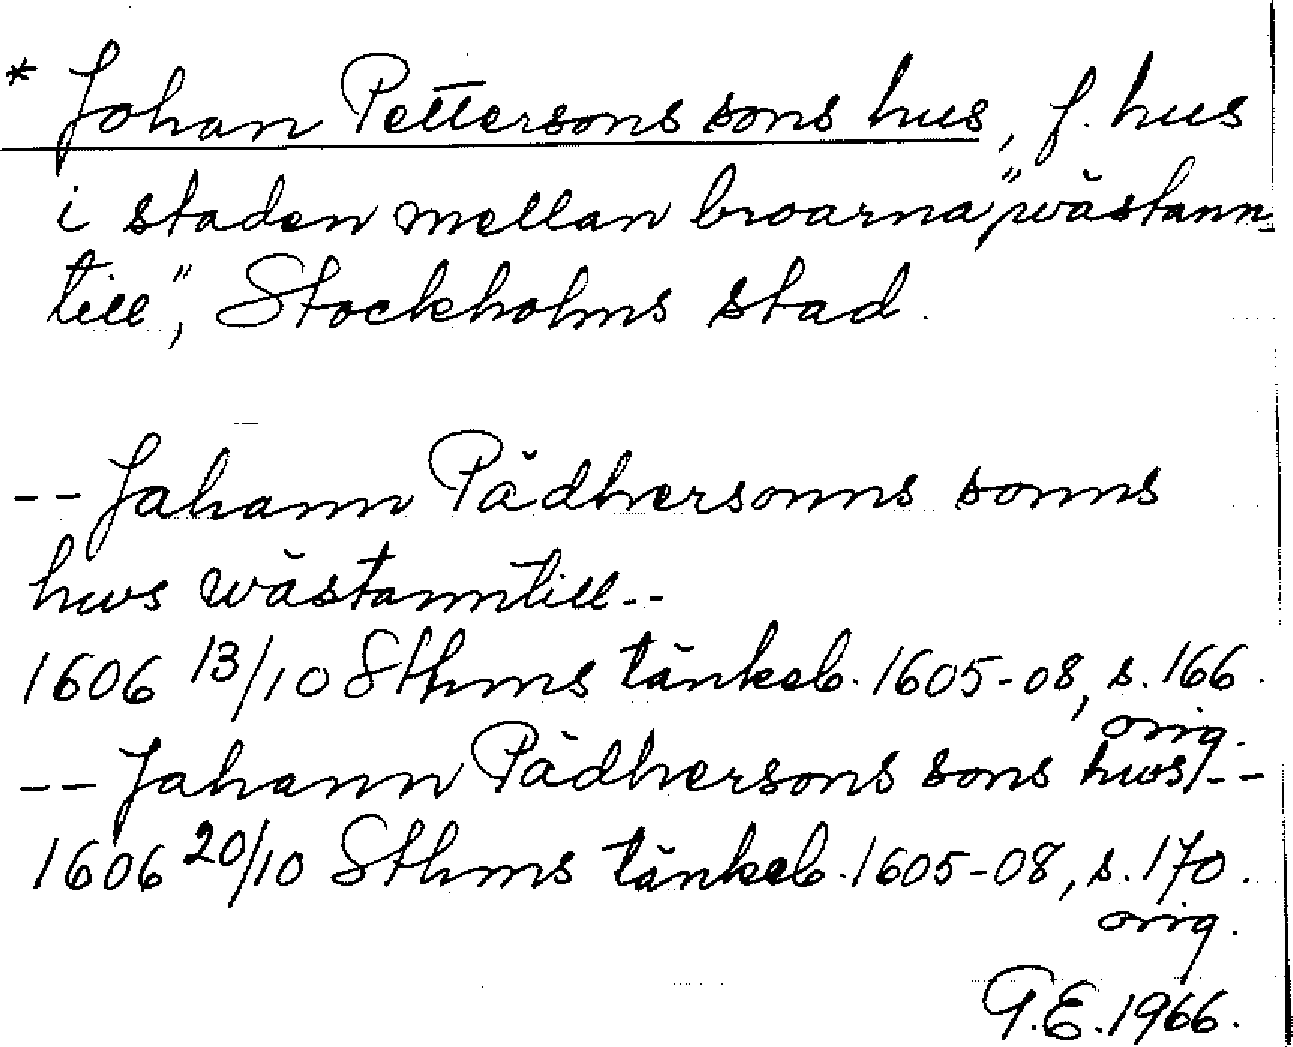 * Johan Pettersons sons hus, f. hus
i staden mellan broarna, "wästann-
till", Stockholms stad.
-- Jahann Pädhersonns sonns
hws wästanntill--
1606 13/10 Sthms tänkeb. 1605-08, s. 166.
orig.
-- Jahann Pädhersons sons hws/--
1606 20/10 Sthms tänkeb. 1605-08, s. 170.
orig.
G.E. 1966.